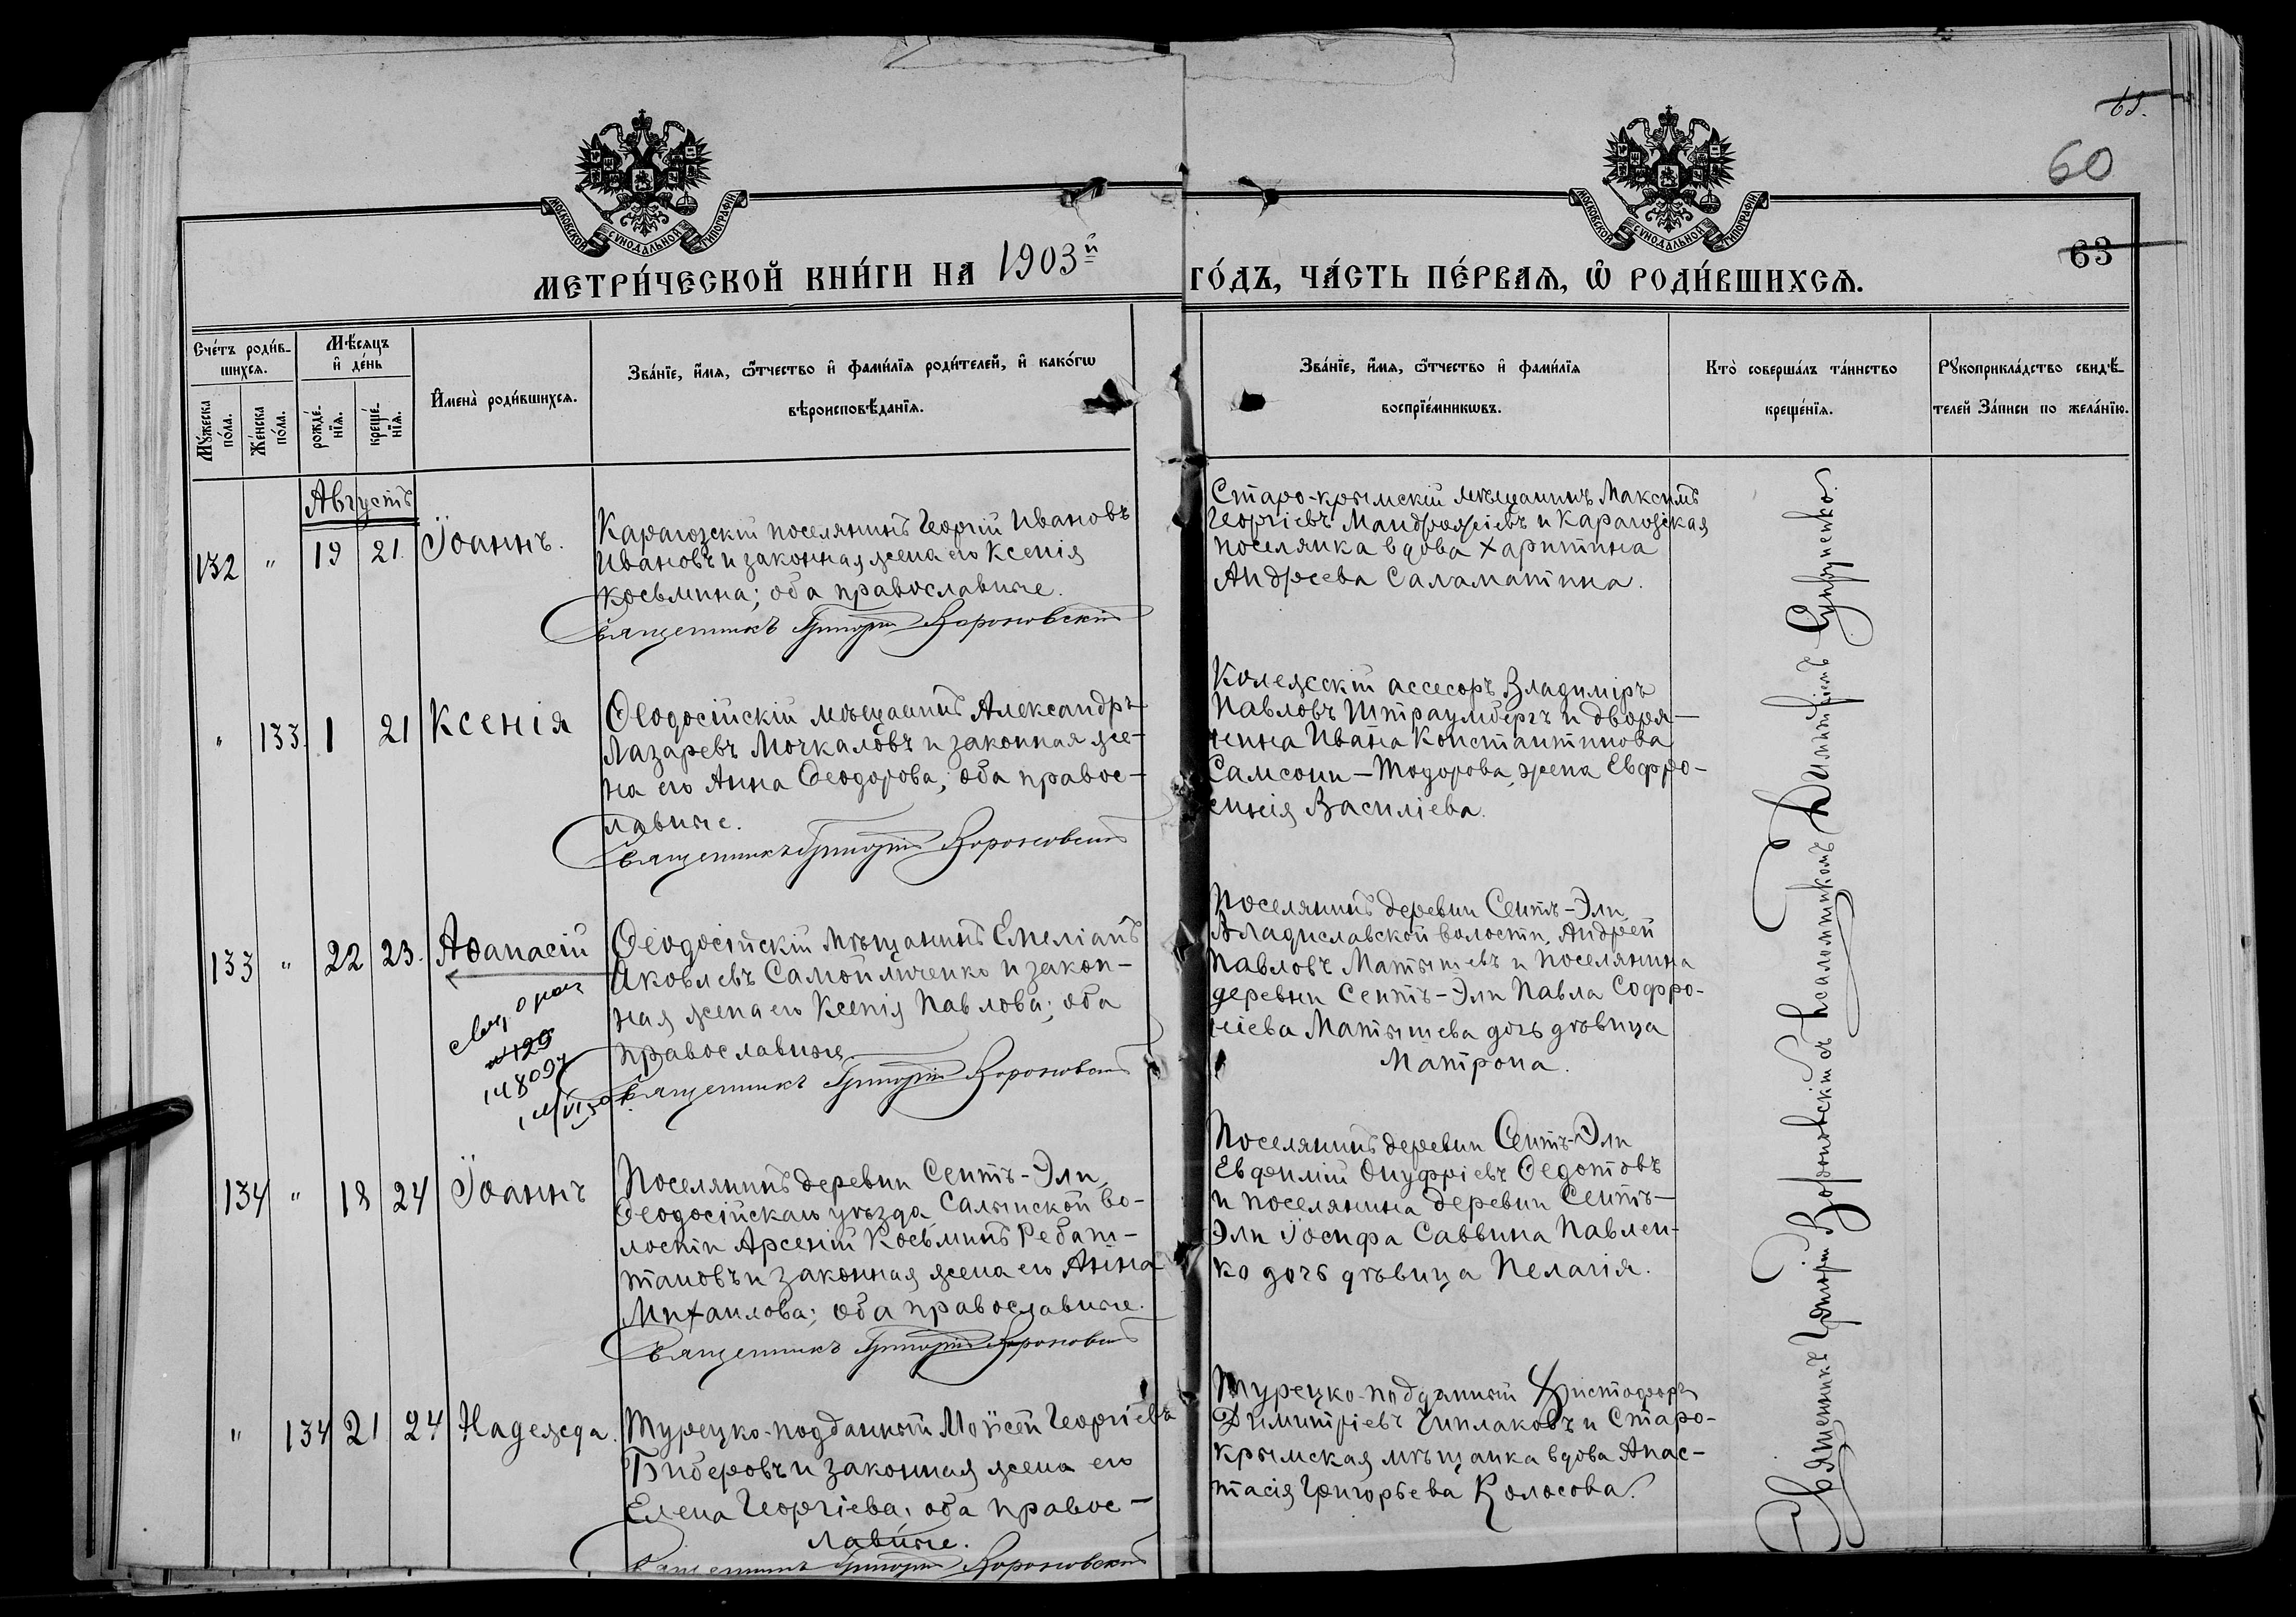 65.
60
63
МОСКОВСКОЙ СУНОДАЛЬНОЙ ТИПОГРАФІИ.
МОСКОВСКОЙ СУНОДАЛЬНОЙ ТИПОГРАФІИ.
МЕТРИ́ЧЕСКОЙ КНИ́ГИ НА 1903й ГО́ДЪ, ЧА́СТЬ ПЕ́РВАѦ, Ѡ РОДИ́ВШИХСѦ.
Сче́тъ роди́в-
шихсѧ.
Му́жеска по́ла.
Же́нска по́ла.
Мѣ́сѧцъ
и де́нь
рожде́-
нїѧ.
креще́-
нїѧ.
Имена̀ роди́вшихсѧ.
Зва́нїе, и́мѧ, ѻ́тчество и фами́лїѧ роди́телей, и како́гѡ
вѣроисповѣ́данїѧ.
Зва́нїе, и́мѧ, ѻ́тчество и фами́лїѧ
воспрїе́мникѡвъ.
Кто̀ соверша́лъ та́инство
креще́нїѧ.
Рꙋкоприкла́дство свидѣ́-
телей за́писи по жела́нїю.
Августъ
132 " 19 21. Іоаннъ.
Карагозскій поселянинъ Георгій Ивановъ
Ивановъ и законная жена его Ксенія
Косьмина; оба православные.
Священникъ Григорій Вороновскій
Старо-крымскій мѣщанинъ Максимъ
Георгіевъ и Карагозская
поселянка вдова Харитина
Андреева Саламатина.
" 133 1 21 Ксенія
Ѳеодосійскій мѣщанинъ Александръ
Лазаревъ Мочкаловъ и законная же-
на его Анна Ѳеодорова; оба правос-
лавные.
Священникъ Григорій Вороновскій
Колежскій ассесоръ Владиміръ
Павловъ Штраумбергъ и дворя-
нина Ивана Константинова
Самсони-Тодорова жена Евфро-
синія Василіева.
133 " 22 23. Аѳанасій
№ 129
Ѳеодосійскій мѣщанинъ Емеліанъ
Яковлевъ Самойличенко и закон-
ная жена его Ксенія Павлова; оба
православные.
Священникъ Григорій Вороновскій
Поселянинъ деревни Сеитъ-Эли
Владиславской волости, Андрей
Павловъ Матышевъ и поселянина
деревни Сеитъ-Эли Павла Софро-
ніева Матышева дочь дѣвица
Матрона.
134 " 18 24 Іоаннъ
Поселянинъ деревни Сеитъ-Эли
Ѳеодосійскаго уѣзда Салынской во-
лости Арсеній Косьминъ Ребат-
тановъ и законная жена его Анна
Михаилова; оба православные.
Священникъ Григорій Вороновскій
Поселянинъ деревни Сеитъ-Эли
Евфимій Онуфріевъ Ѳедотовъ
и поселянина деревни Сеитъ-
Эли Іосифа Саввина Павлен-
ко дочь дѣвица Пелагія.
" 134 21 24 Надежда.
Турецко-подданный Моисей Георгіевъ
Биберовъ и законная жена его
Елена Георгіева; оба правос-
лавные.
Священникъ Григорій Вороновскій
Турецко-подданный Христофоръ
Димитріевъ Чиплаковъ и Старо-
крымская мѣщанка вдова Анас-
тасія Григорьева Колосова.
Священникъ Григорій Вороновскій съ псаломщикомъ Димитріемъ Супруненко.